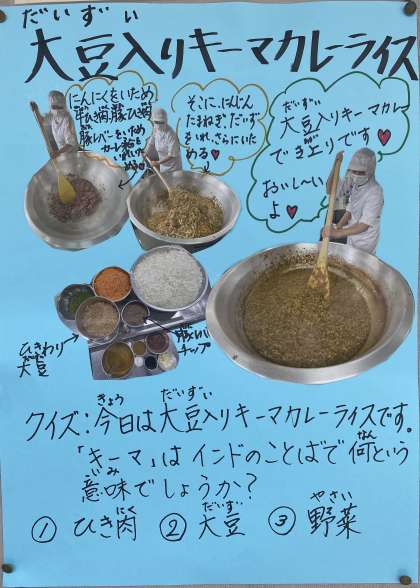 だいずい
大豆入りキーマカレーライス
にんにくをいため
牛ひき肉、豚ひき肉
豚レバーをいため
カレー粉を
いれいた
める♥
そこに、にんじん
たまねぎ、だいず
をいれ、さらにいた
める♥
だいずい
大豆入りキーマカレー
でき上りです♥
おいし〜い
よ♥
ひきわり
大豆
豚レバー
チップ
きょう だいずい
クイズ:今日は大豆入りキーマカレーライスです。
なん
「キーマ」はインドのことばで何という
いみ
意味でしょうか?
にく だいず やさい
① ひき肉 ② 大豆 ③ 野菜